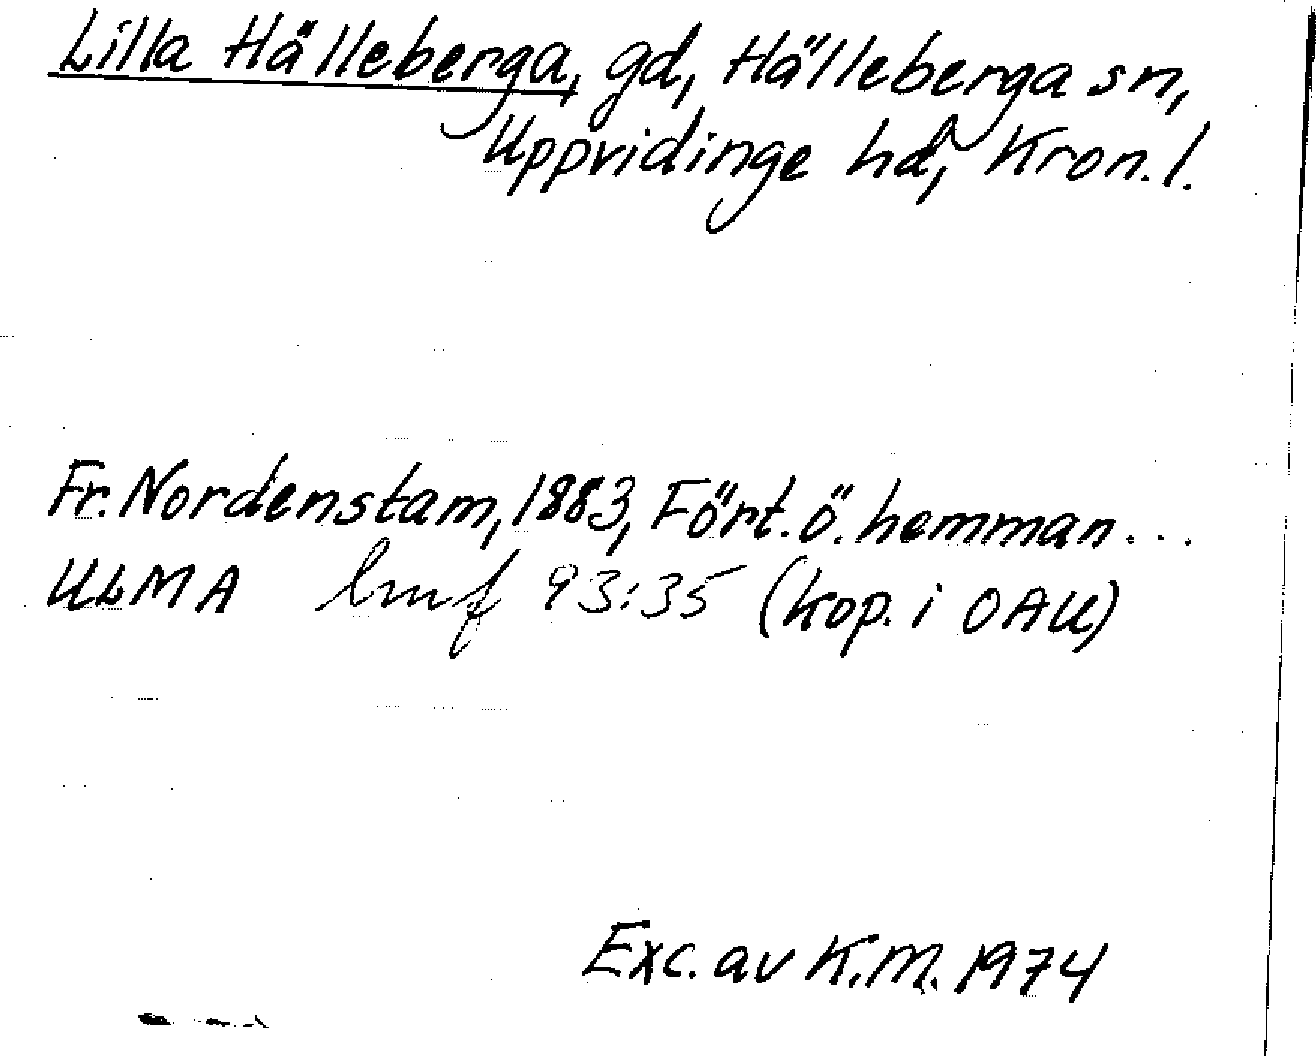 Lilla Hälleberga, gd, Hälleberga sn,
Uppvidinge hd, Kron. l.
Fr. Nordenstam, 1883, Fört. ö. hemman...
ULMA lmf 93:35 (kop. i OAU)
Exc. av K.M. 1974